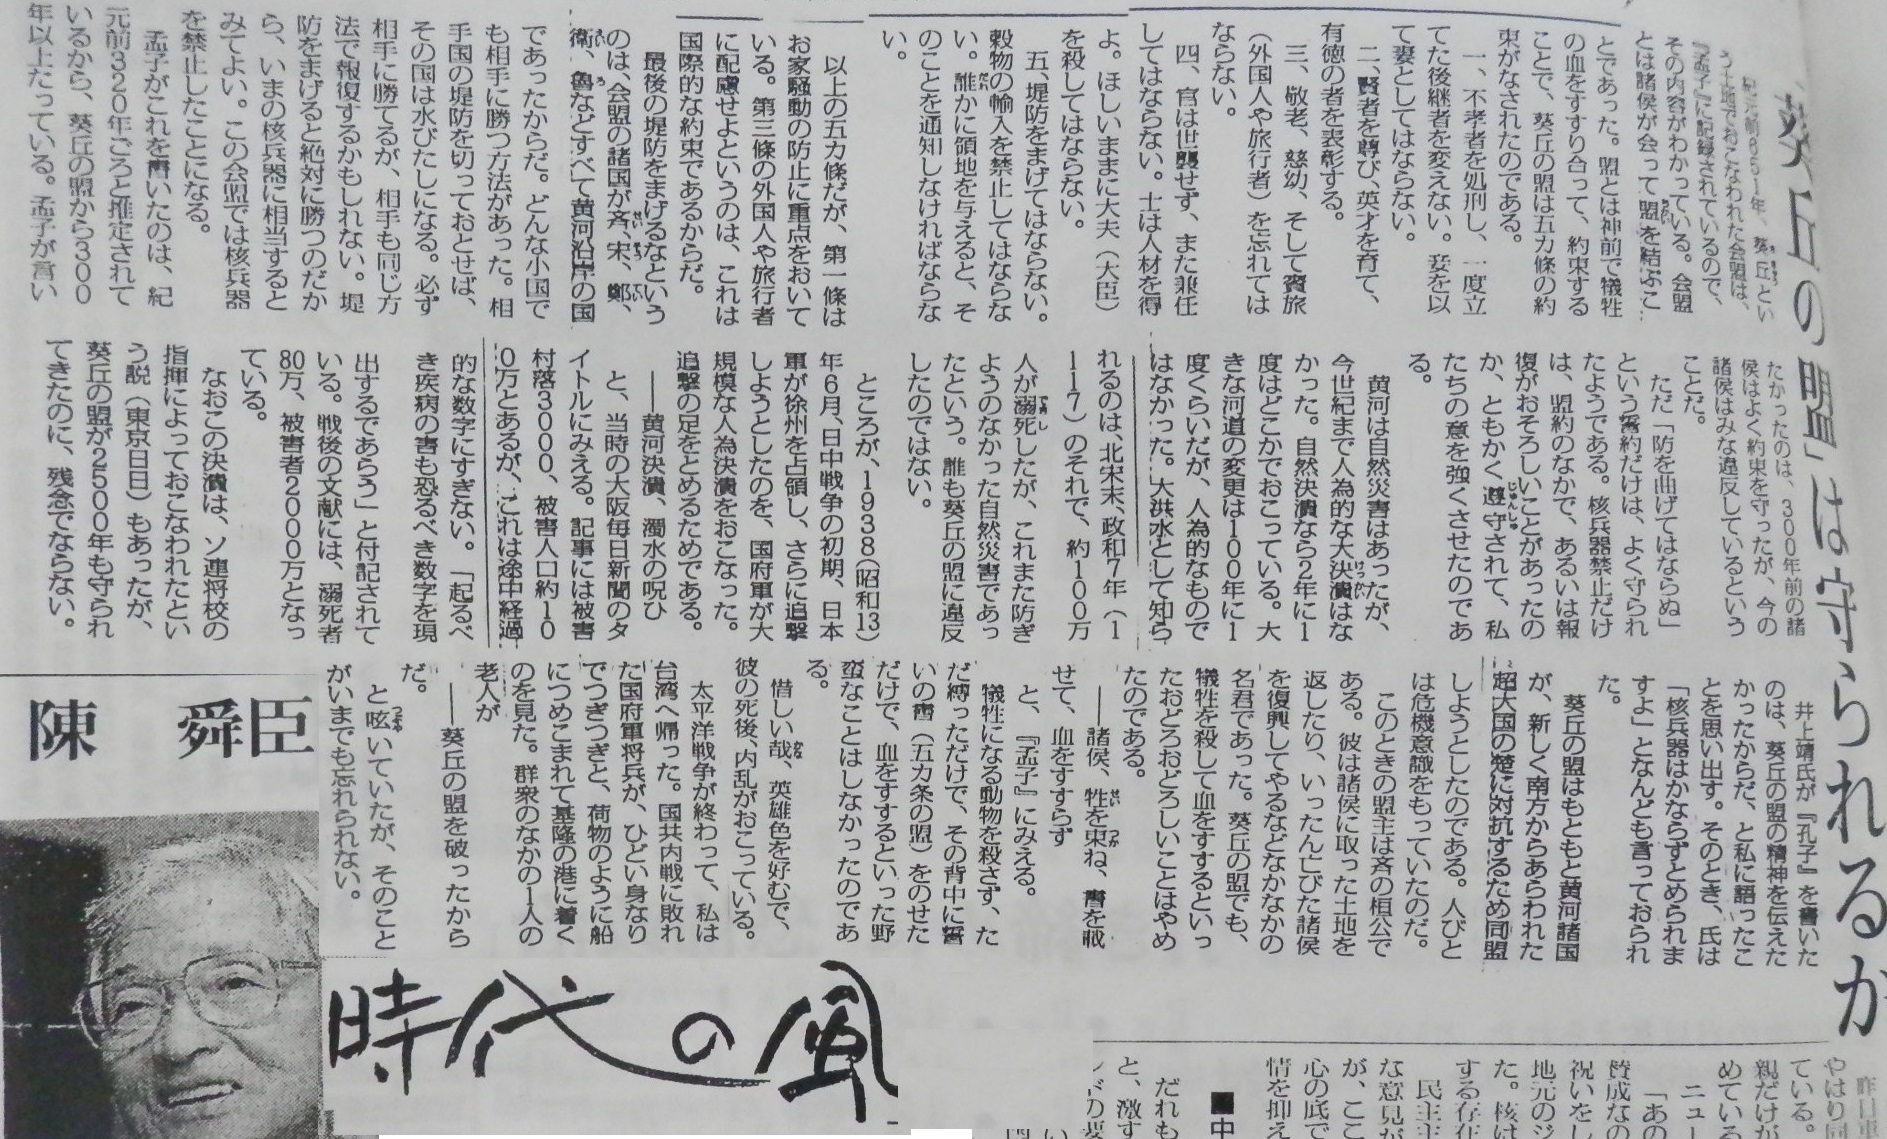 「葵丘の盟」は守られるか
紀元前651年、葵丘とい
う土地でおこなわれた会盟は、
『孟子』に記録されているので、
その内容がわかっている。会盟
とは諸侯が会って盟を結ぶこ
とであった。盟とは神前で犠牲
の血をすすり合って、約束する
ことで、葵丘の盟は五カ條の約
束がなされたのである。
一、不孝者を処刑し、一度立
てた後継者を変えない。妾を以
て妻としてはならない。
二、賢者を尊び、英才を育て、
有徳の者を表彰する。
三、敬老、慈幼、そして賓旅
(外国人や旅行者)を忘れては
ならない。
四、官は世襲せず、また兼任
してはならない。士は人材を得
よ。ほしいままに大夫(大臣)
を殺してはならない。
五、堤防をまげてはならない。
穀物の輸入を禁止してはならな
い。誰かに領地を与えると、そ
のことを通知しなければならな
い。
以上の五カ條だが、第一條は
お家騒動の防止に重点をおいて
いる。第三條の外国人や旅行者
に配慮せよというのは、これは
国際的な約束であるからだ。
最後の堤防をまげるなという
のは、会盟の諸国が斉、宋、鄭、
衛、魯などすべて黄河沿岸の国
であったからだ。どんな小国で
も相手に勝つ方法があった。相
手国の堤防を切っておとせば、
その国は水びたしになる。必ず
相手に勝てるが、相手も同じ方
法で報復するかもしれない。堤
防をまげると絶対に勝つのだか
ら、いまの核兵器に相当すると
みてよい。この会盟では核兵器
を禁止したことになる。
孟子がこれを書いたのは、紀
元前320年ごろと推定されて
いるから、葵丘の盟から300
年以上たっている。孟子が言い
たかったのは、300年前の諸
侯はよく約束を守ったが、今の
諸侯はみな違反しているという
ことだ。
ただ「防を曲げてはならぬ」
という誓約だけは、よく守られ
たようである。核兵器禁止だけ
は、盟約のなかで、あるいは報
復がおそろしいことがあったの
か、ともかく遵守されて、私
たちの意を強くさせたのであ
る。
黄河は自然災害はあったが、
今世紀まで人為的な大決潰はな
かった。自然決潰なら2年に1
度はどこかでおこっている。大
きな河道の変更は100年に1
度くらいだが、人為的なもので
はなかった。大洪水として知ら
れるのは、北宋末、政和7年(1
117)のそれで、約100万
人が溺死したが、これまた防ぎ
ようのなかった自然災害であっ
たという。誰も葵丘の盟に違反
したのではない。
ところが、1938(昭和13)
年6月、日中戦争の初期、日本
軍が徐州を占領し、さらに追撃
しようとしたのを、国府軍が大
規模な人為決潰をおこなった。
追撃の足をとめるためである。
――黄河決潰、濁水の呪ひ
と、当時の大阪毎日新聞のタ
イトルにみえる。記事には被害
村落3000、被害人口約10
0万とあるが、これは途中経過
的な数字にすぎない。「起るべ
き疾病の害も恐るべき数字を現
出するであらう」と付記されて
いる。戦後の文献には、溺死者
80万、被害者2000万となっ
ている。
なおこの決潰は、ソ連将校の
指揮によっておこなわれたとい
う説(東京日日)もあったが、
葵丘の盟が2500年も守られ
てきたのに、残念でならない。
井上靖氏が『孔子』を書いた
のは、葵丘の盟の精神を伝えた
かったからだ、と私に語ったこ
とを思い出す。そのとき、氏は
「核兵器はかならずとめられま
すよ」となんども言っておられ
た。
葵丘の盟はもともと黄河諸国
が、新しく南方からあらわれた
超大国の楚に対抗するため同盟
しようとしたのである。人びと
は危機意識をもっていたのだ。
このときの盟主は斉の桓公で
ある。彼は諸侯に取った土地を
返したり、いったん亡びた諸侯
を復興してやるなどなかなかの
名君であった。葵丘の盟でも、
犠牲を殺して血をすするといっ
たおどろおどろしいことはやめ
たのである。
――諸侯、牲を束ね、書を載
せて、血をすすらず
と、『孟子』にみえる。
犠牲になる動物を殺さず、た
だ縛っただけで、その背中に誓
いの書(五カ条の盟)をのせた
だけで、血をすするといった野
蛮なことはしなかったのであ
る。
惜しい哉、英雄色を好むで、
彼の死後、内乱がおこっている。
太平洋戦争が終わって、私は
台湾へ帰った。国共内戦に敗れ
た国府軍将兵が、ひどい身なり
でつぎつぎと、荷物のように船
につめこまれて基隆の港に着く
のを見た。群衆のなかの1人の
老人が
――葵丘の盟を破ったから
だ。
と呟いていたが、そのこと
がいまでも忘れられない。
陳 舜臣
時代の風
昨日東
やはり同
ている。
親だけが
めている
ニュー
「あの
賛成なの
祝いをし
地元のジ
た。核は
する存在
民主主
な意見が
が、ここ
心の底で
情を抑え
■中
だれも
と、激す